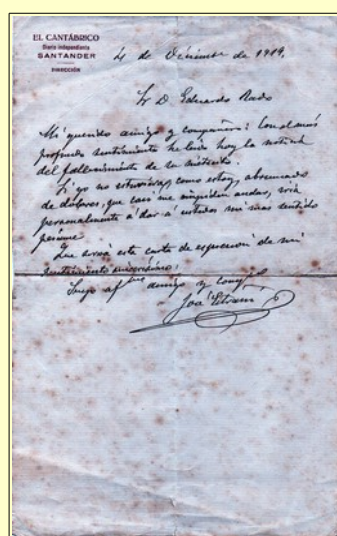 EL CANTÁBRICO
Diario independiente
SANTANDER
DIRECCIÓN
4 de Diciembre de 1919.
Sr D. Eduardo Rado
Mi querido amigo y compañero: Con el mas
profundo sentimiento he leido hoy la noticia
del fallecimiento de su
Si yo no estuviera, como estoy, abrumado
de dolores, que casi me impiden andar, iria
personalmente á dar á ustedes mi mas sentido
pésame.
Que sirva esta carta de espresion de mi
sentimiento
Suyo af amigo y comp
José Estrañi